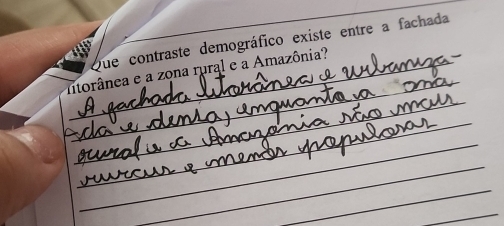 Que contraste demográfico existe entre a fachada
litorânea e a zona rural e a Amazônia?
A fachada litorânea e urbaniza-
da e densa, enquanto a zona
rural e a Amazônia são mais
rurais e menos